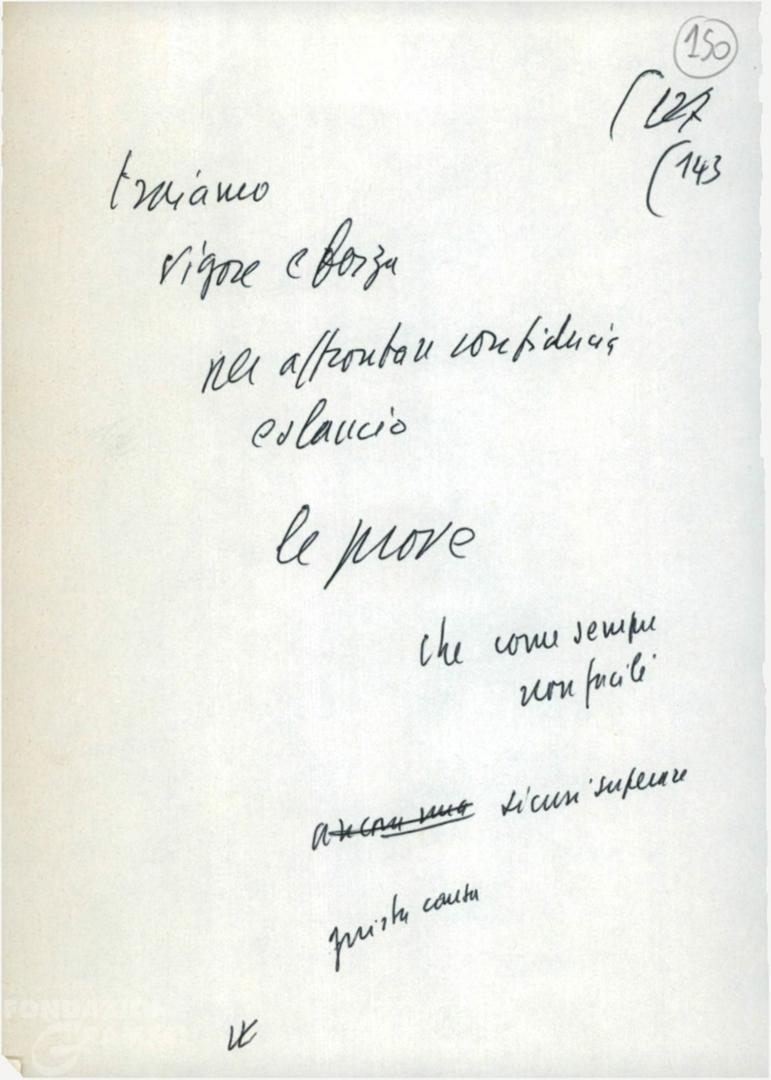 150
127
143
traiamo
vigore e forza
per affrontare con fiducia
e slancio
le prove
che come sempre
non facili
ancora una sicuri superare
giusta causa
FONDAZIONE